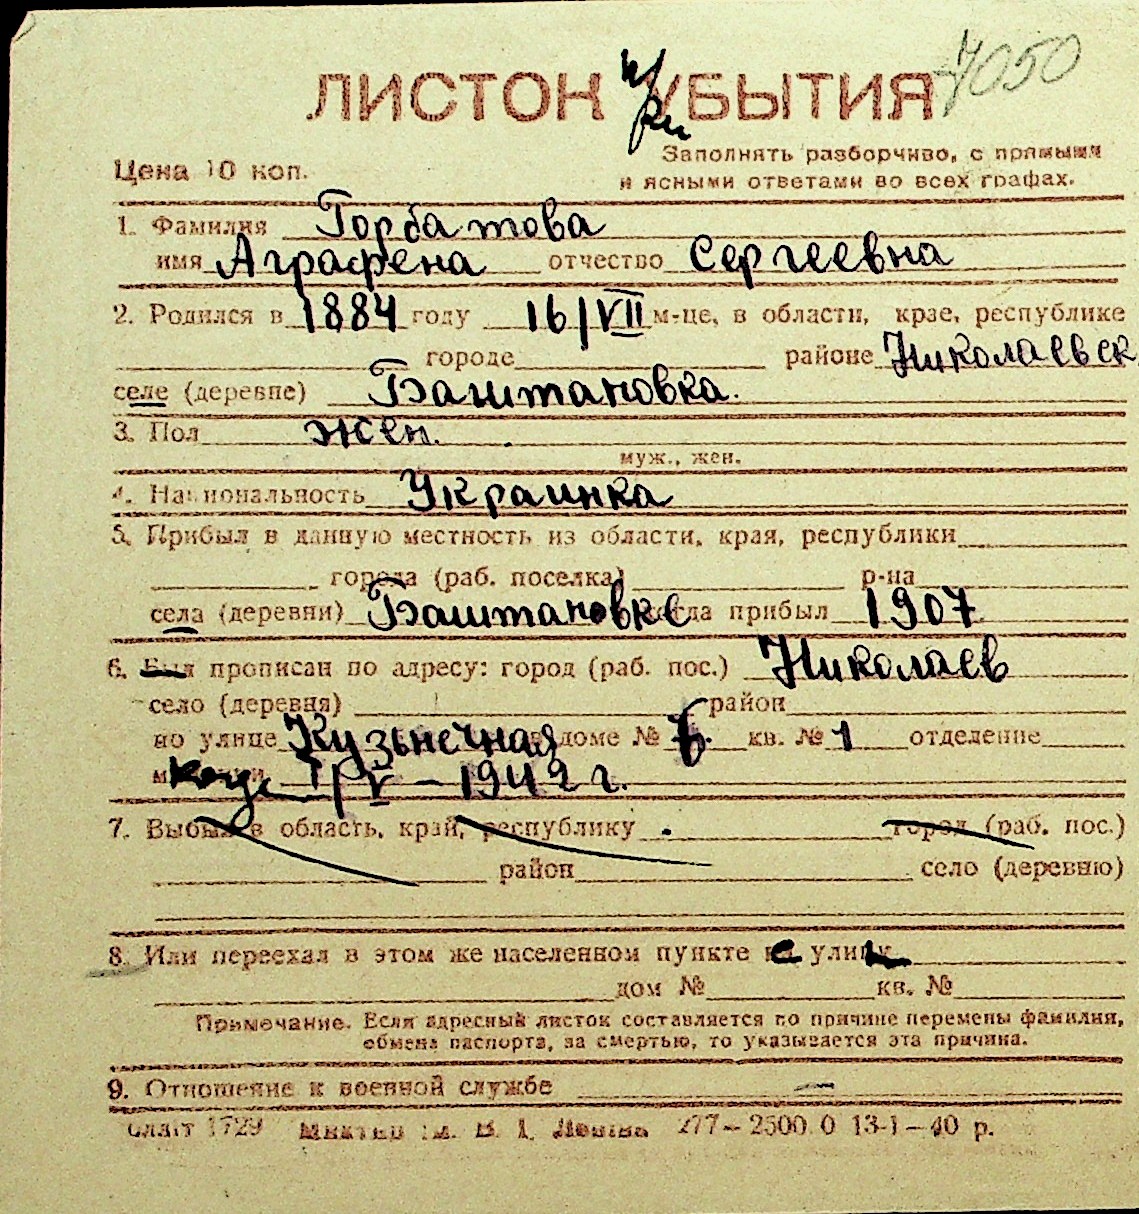 7050
ЛИСТОК УБЫТИЯ
Цена 10 коп.
Заполнять разборчиво, с прямыми
и ясными ответами во всех графах.
1. Фамилия Горбатова
имя Аграфена отчество Сергеевна
2. Родился в 1884 году 16/VII м-це, в области, крае, республике
городе районе Николаевск
селе (деревне) Баштановка.
3. Пол жен.
муж., жен.
4. Национальность Украинка
5. Прибыл в данную местность из области, края, республики
города (раб. поселка) р-на
села (деревни) Баштановке когда прибыл 1907
6. Был прописан по адресу: город (раб. пос.) Николаев
село (деревня) район
по улице Кузьнечная доме № 6. кв. № 1 отделение
I/V – 1942 г.
7. Выбыл в область, край, республику город (раб. пос.)
район село (деревню)
8. Или переехал в этом же населенном пункте на улицу
дом № кв. №
Примечание. Если адресный листок составляется по причине перемены фамилии,
обмена паспорта, за смертью, то указывается эта причина.
9. Отношение к военной службе —
1729 277–2500 0 13-1–40 р.